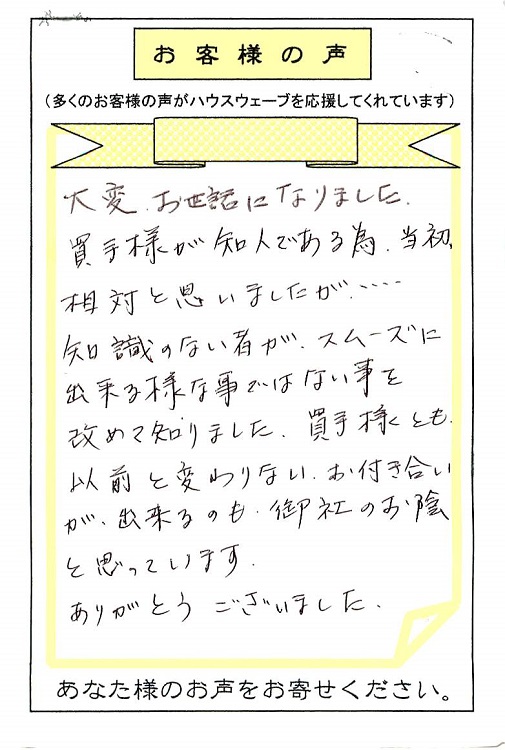 お客様の声
（多くのお客様の声がハウスウェーブを応援してくれています）
大変、お世話になりました。
買手様が知人である為、当初、
相対と思いましたが、････
知識のない者が、スムーズに
出来る様な事ではない事を
改めて知りました。買手様とも、
以前と変わりない、お付き合い
が、出来るのも、御社のお陰
と思っています。
ありがとうございました。
あなた様のお声をお寄せください。